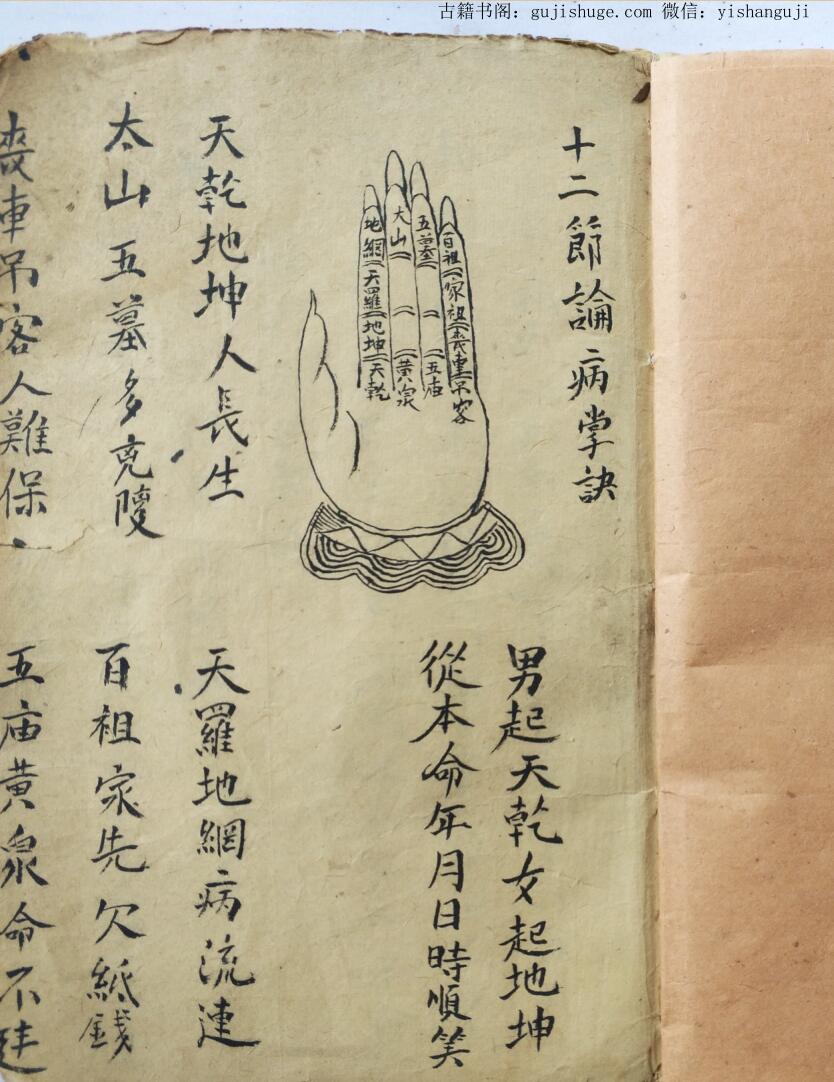 古籍书阁：gujishuge.com 微信：yishanguji
十二節論病掌訣
地網
天羅
地坤
天乾
太山
黄泉
五墓
五庙
百祖
家祖
喪車
吊客
男起天乾女起地坤
從本命年月日時順笑
天乾地坤人長生
天羅地網病流連
太山五墓多克陵
百祖家先欠紙錢
喪車吊客人難保
五庙黄泉命不